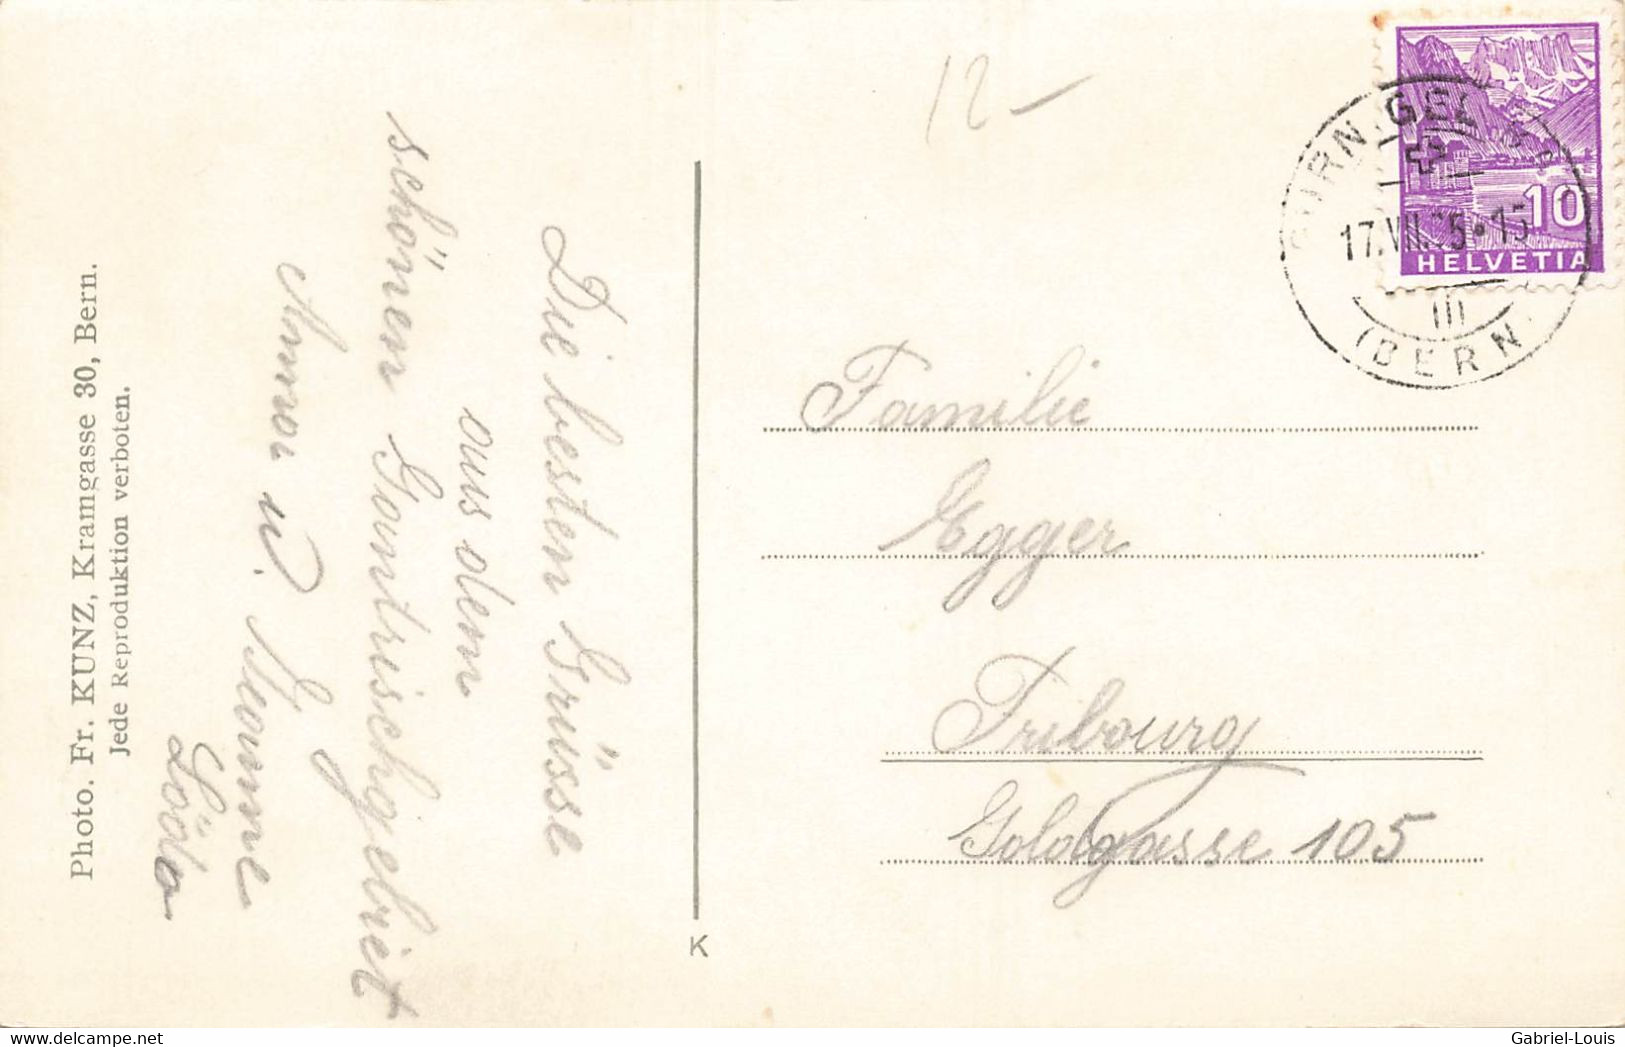 Photo. Fr. KUNZ, Kramgasse 30, Bern.
Jede Reproduktion verboten.
Die besten Grüsse
aus dem
schönen Gantrischgebiet
Anna u.
12 –
GURNIGEL
17.VII.35•15
III
(BERN
10
HELVETIA
Familie
Egger
Fribourg
Goldgasse 105
K
www.delcampe.net
Gabriel-Louis